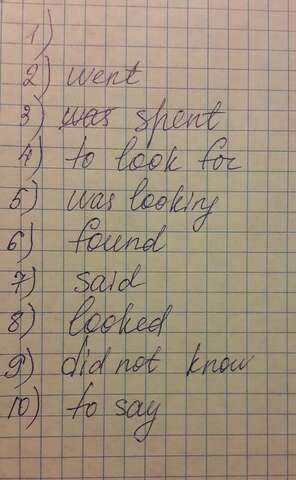 1)
2) went
3) was spent
4) to look for
5) was looking
6) found
7) said
8) looked
9) did not know
10) to say